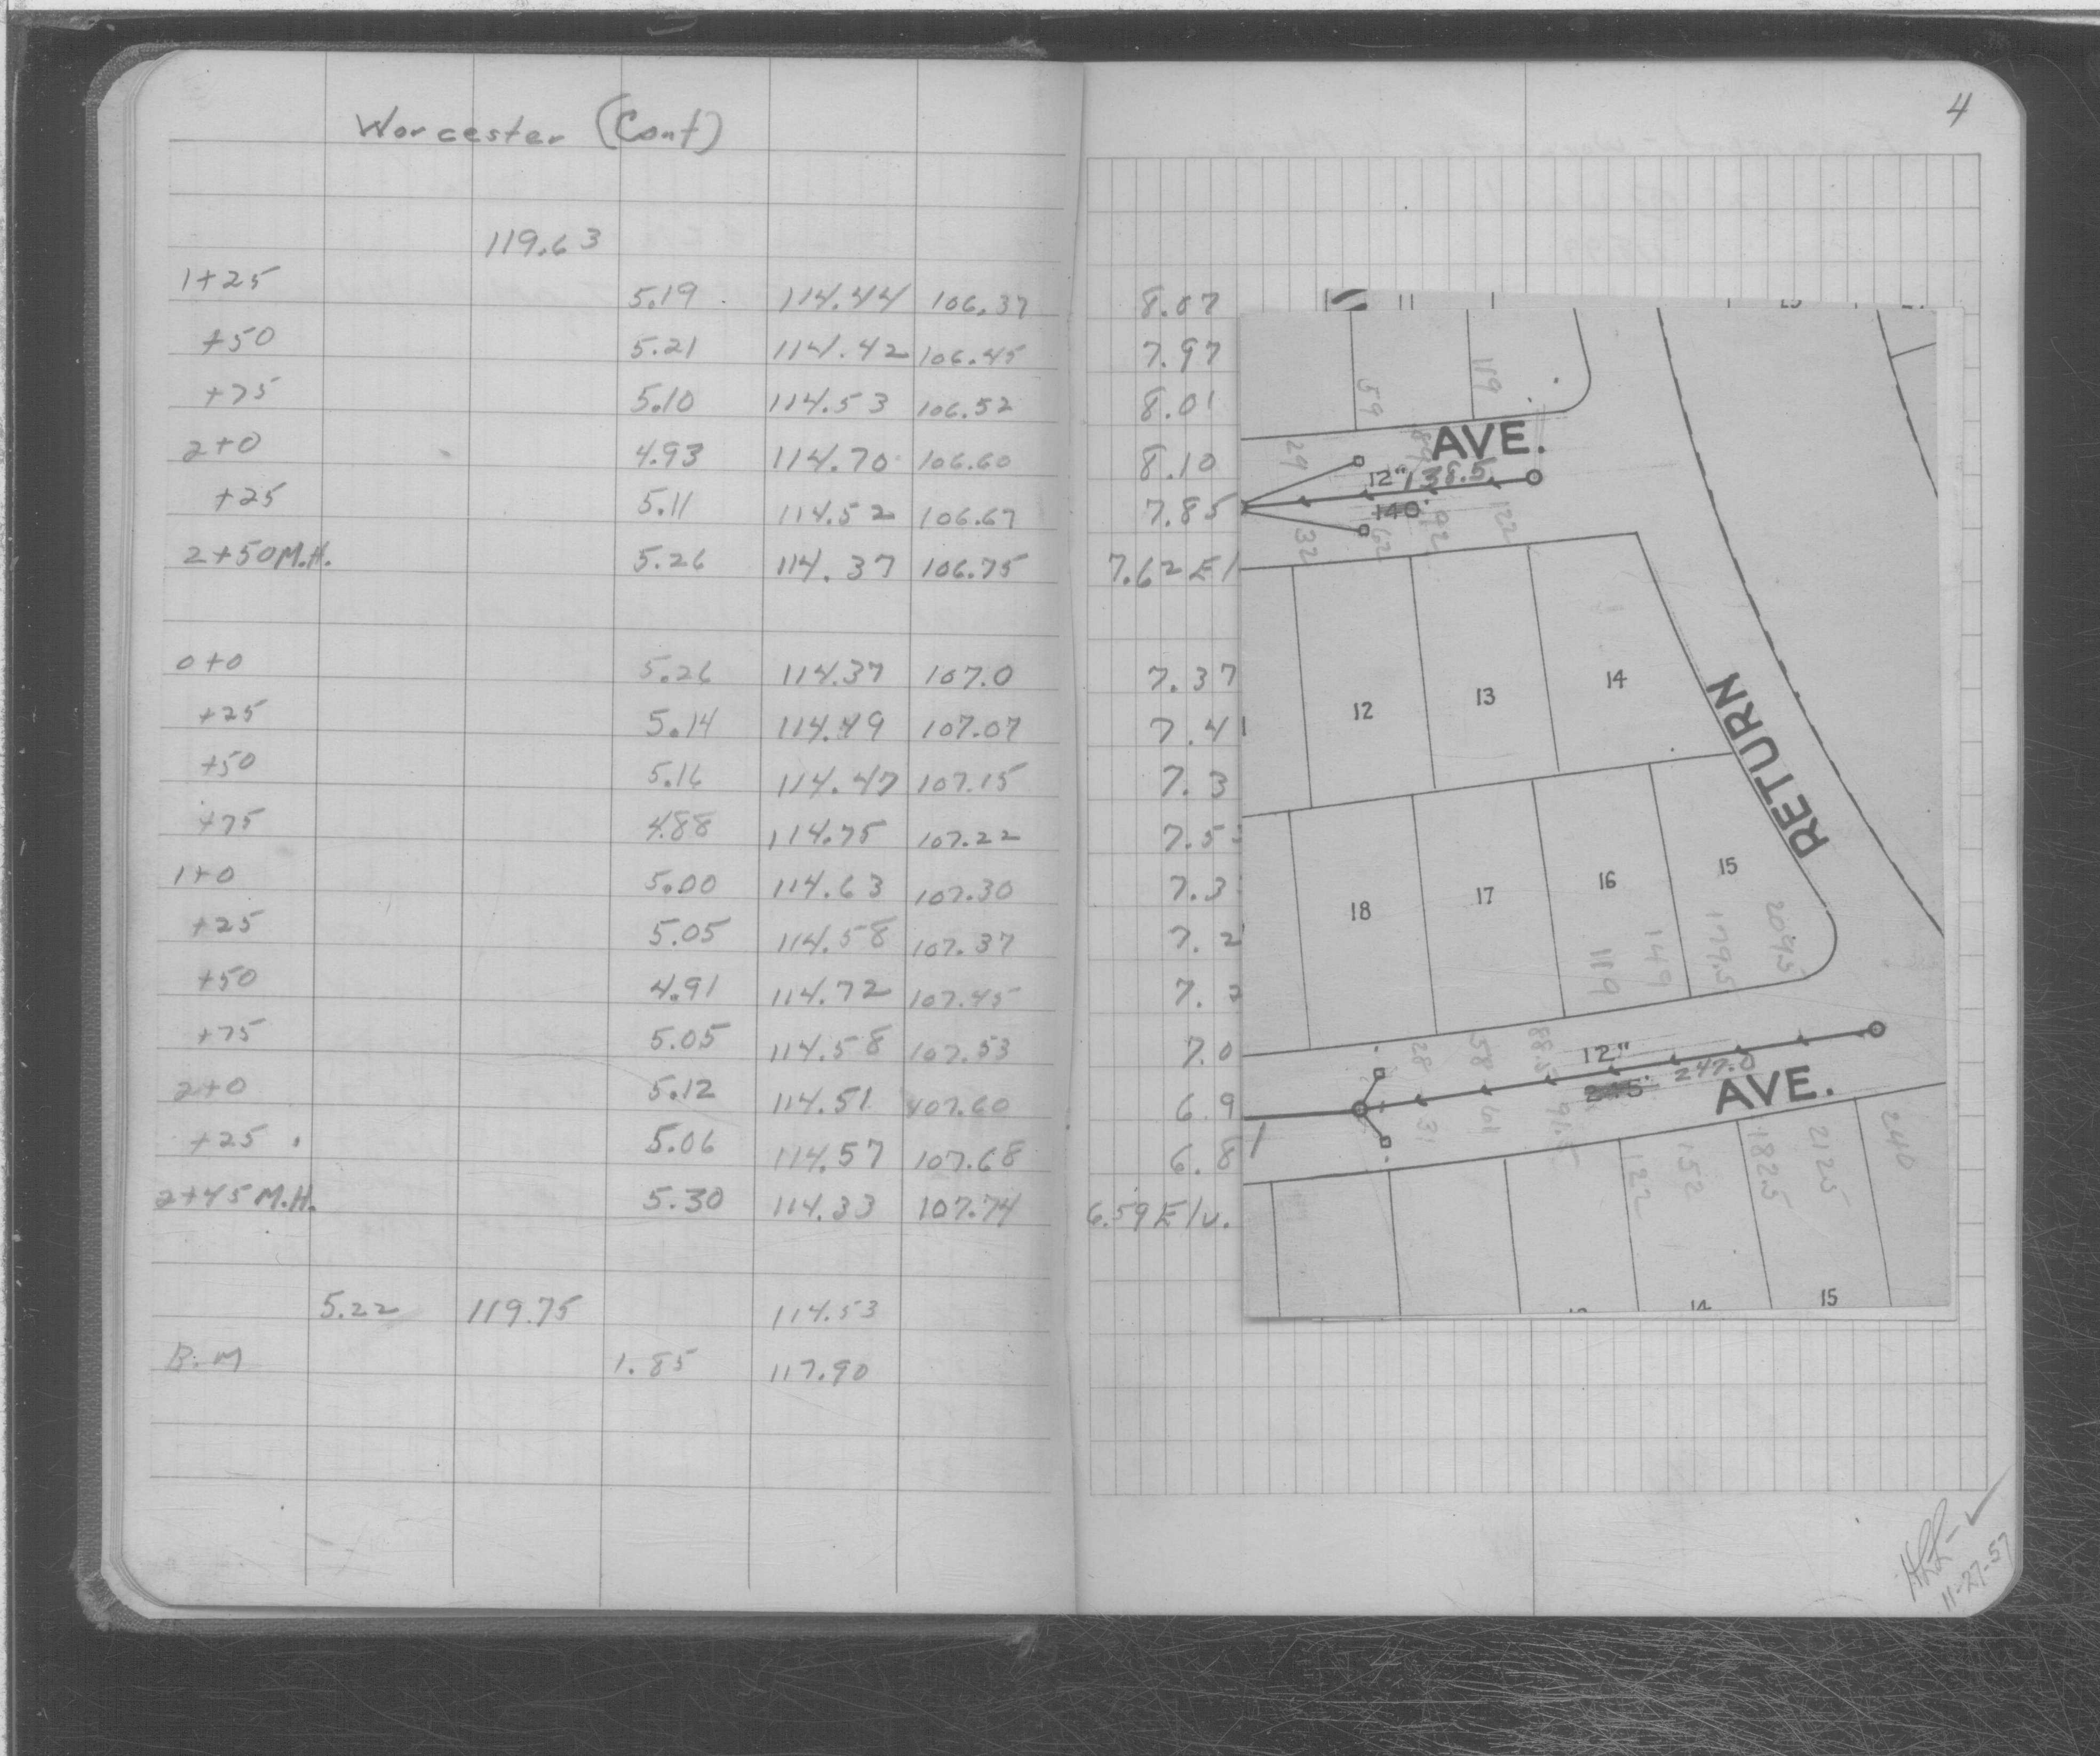 Worcester (Cont)
119.63
1+25 5.19 114.44 106.37 8.07
+50 5.21 114.42 106.45 7.97
+75 5.10 114.53 106.52 8.01
2+0 4.93 114.70 106.60 8.10
+25 5.11 114.52 106.67 7.85
2+50 M.H. 5.26 114.37 106.75 7.62 El
0+0 5.26 114.37 107.0 7.37
+25 5.14 114.49 107.07 7.41
+50 5.16 114.47 107.15 7.3
+75 4.88 114.75 107.22 7.5
1+0 5.00 114.63 107.30 7.3
+25 5.05 114.58 107.37 7.2
+50 4.91 114.72 107.45 7.2
+75 5.05 114.58 107.53 7.0
2+0 5.12 114.51 107.60 6.9
+25 5.06 114.57 107.68 6.8
2+45 M.H. 5.30 114.33 107.74 6.59 Elv.
5.22 119.75 114.53
B.M 1.85 117.90
4
11
59 119
AVE.
29 89
12" 138.5
140'
32 62 92 122
12 13 14
RETURN
18 17 16 15
119 149 179.5 204.5
28 58 88.5
12"
245' 247.0
AVE.
31 61 91.5 122 152 182.5 212.5 240
14 15
11-27-57